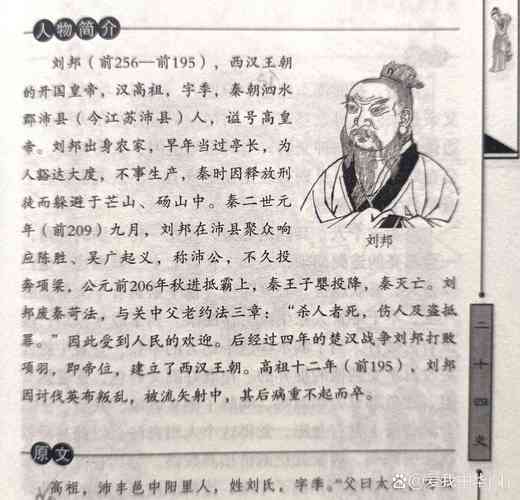 人物简介
刘邦（前256—前195），西汉王朝
的开国皇帝，汉高祖，字季，秦朝泗水
郡沛县（今江苏沛县）人，谥号高皇
帝。刘邦出身农家，早年当过亭长，为
人豁达大度，不事生产，秦时因释放刑
徒而躲避于芒山、砀山中。秦二世元
年（前209）九月，刘邦在沛县聚众响
应陈胜、吴广起义，称沛公，不久投
奔项梁，公元前206年秋进抵霸上，秦王子婴投降，秦灭亡。刘
邦废秦苛法，与关中父老约法三章：“杀人者死，伤人及盗抵
罪。”因此受到人民的欢迎。后经过四年的楚汉战争刘邦打败
项羽，即帝位，建立了西汉王朝。高祖十二年（前195），刘邦
因讨伐英布叛乱，被流矢射中，其后病重不起而卒。
刘邦
二十四史
原文
高祖，沛丰邑中阳里人，姓刘氏，字季。“父曰太